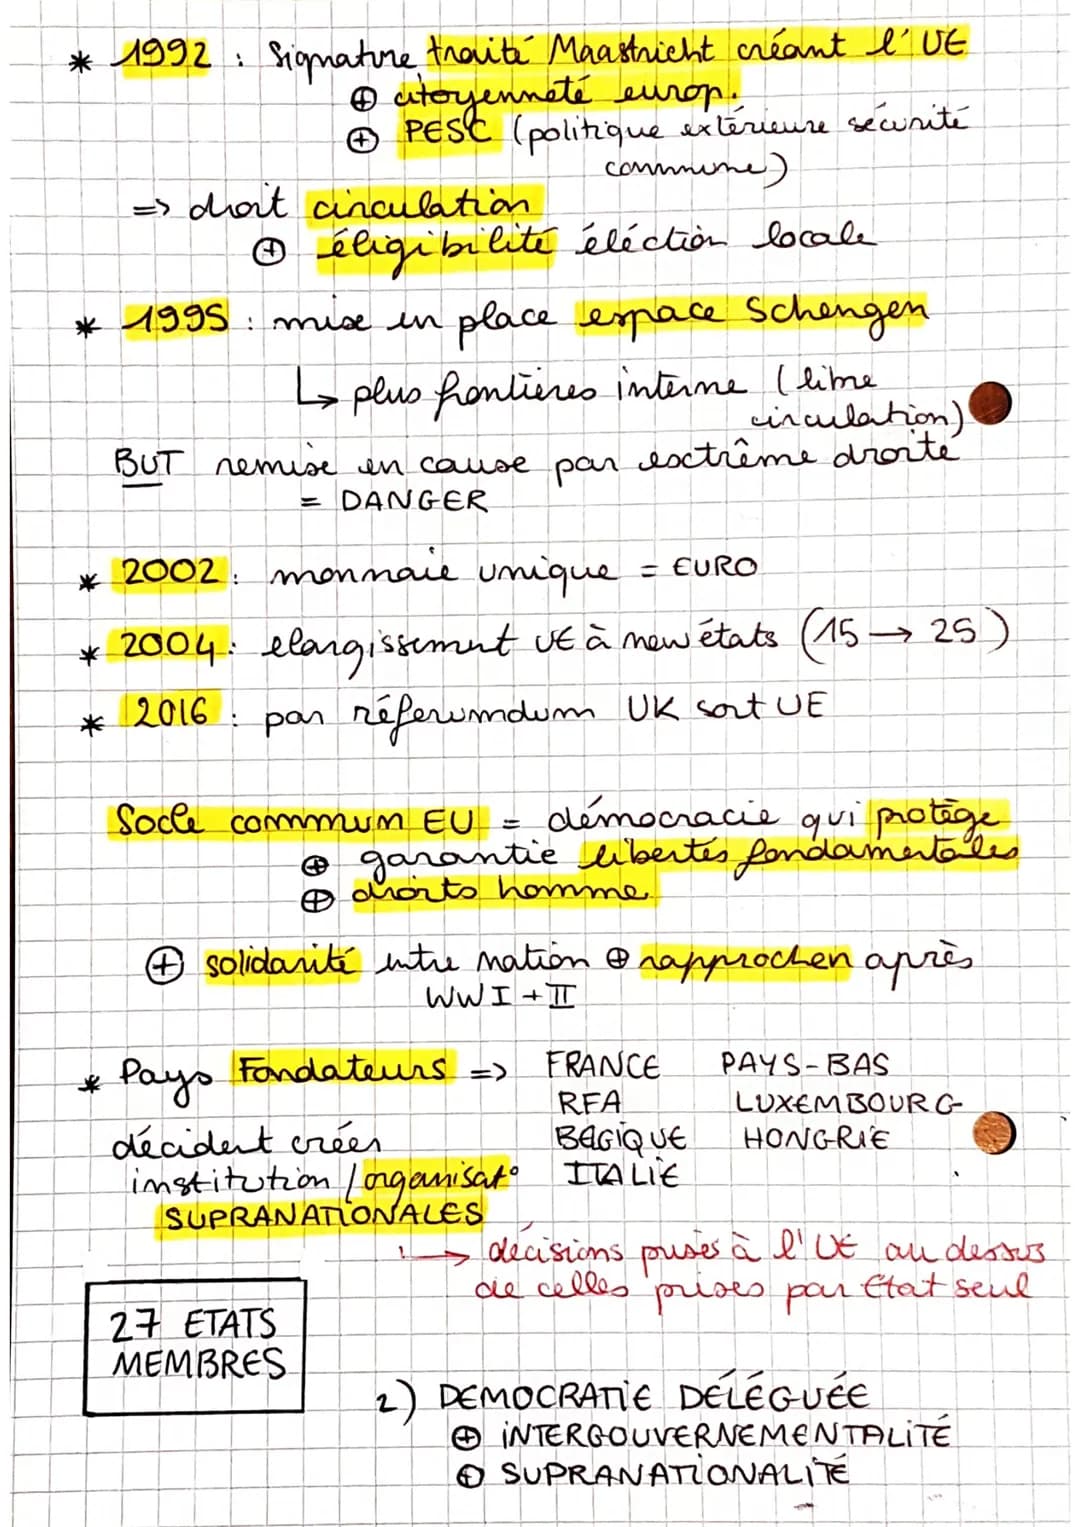 * 1992 : Signature traité Maastricht créant l'UE
⊕ citoyenneté europ.
⊕ PESC (politique extérieure sécurité
commune)
=> droit circulation
⊕ éligibilité éléction locale
* 1995 : mise en place espace Schengen
↳ plus frontières interne (libre
circulation)
BUT remise en cause par esctrême droite
= DANGER
* 2002 : monnaie unique = EURO
* 2004 : elargissement UE à new états (15 → 25)
* 2016 : par réferumdum UK sort UE
Socle commum EU = démocracie qui protège
⊕ garantie libertés fondamentales
⊕ droits homme
⊕ solidarité entre nation ⊕ rapprocher après
WWI + II
* Pays Fondateurs => FRANCE PAYS-BAS
RFA LUXEMBOURG
décident créer BEGIQUE HONGRIE
institution / organisat° ITALIE
SUPRANATIONALES
↳ décisions prises à l'UE au dessus
de celles prises par État seul
27 ETATS
MEMBRES
2) DEMOCRATIE DÉLÉGUÉE
⊕ INTERGOUVERNEMENTALITÉ
⊕ SUPRANATIONALITÉ